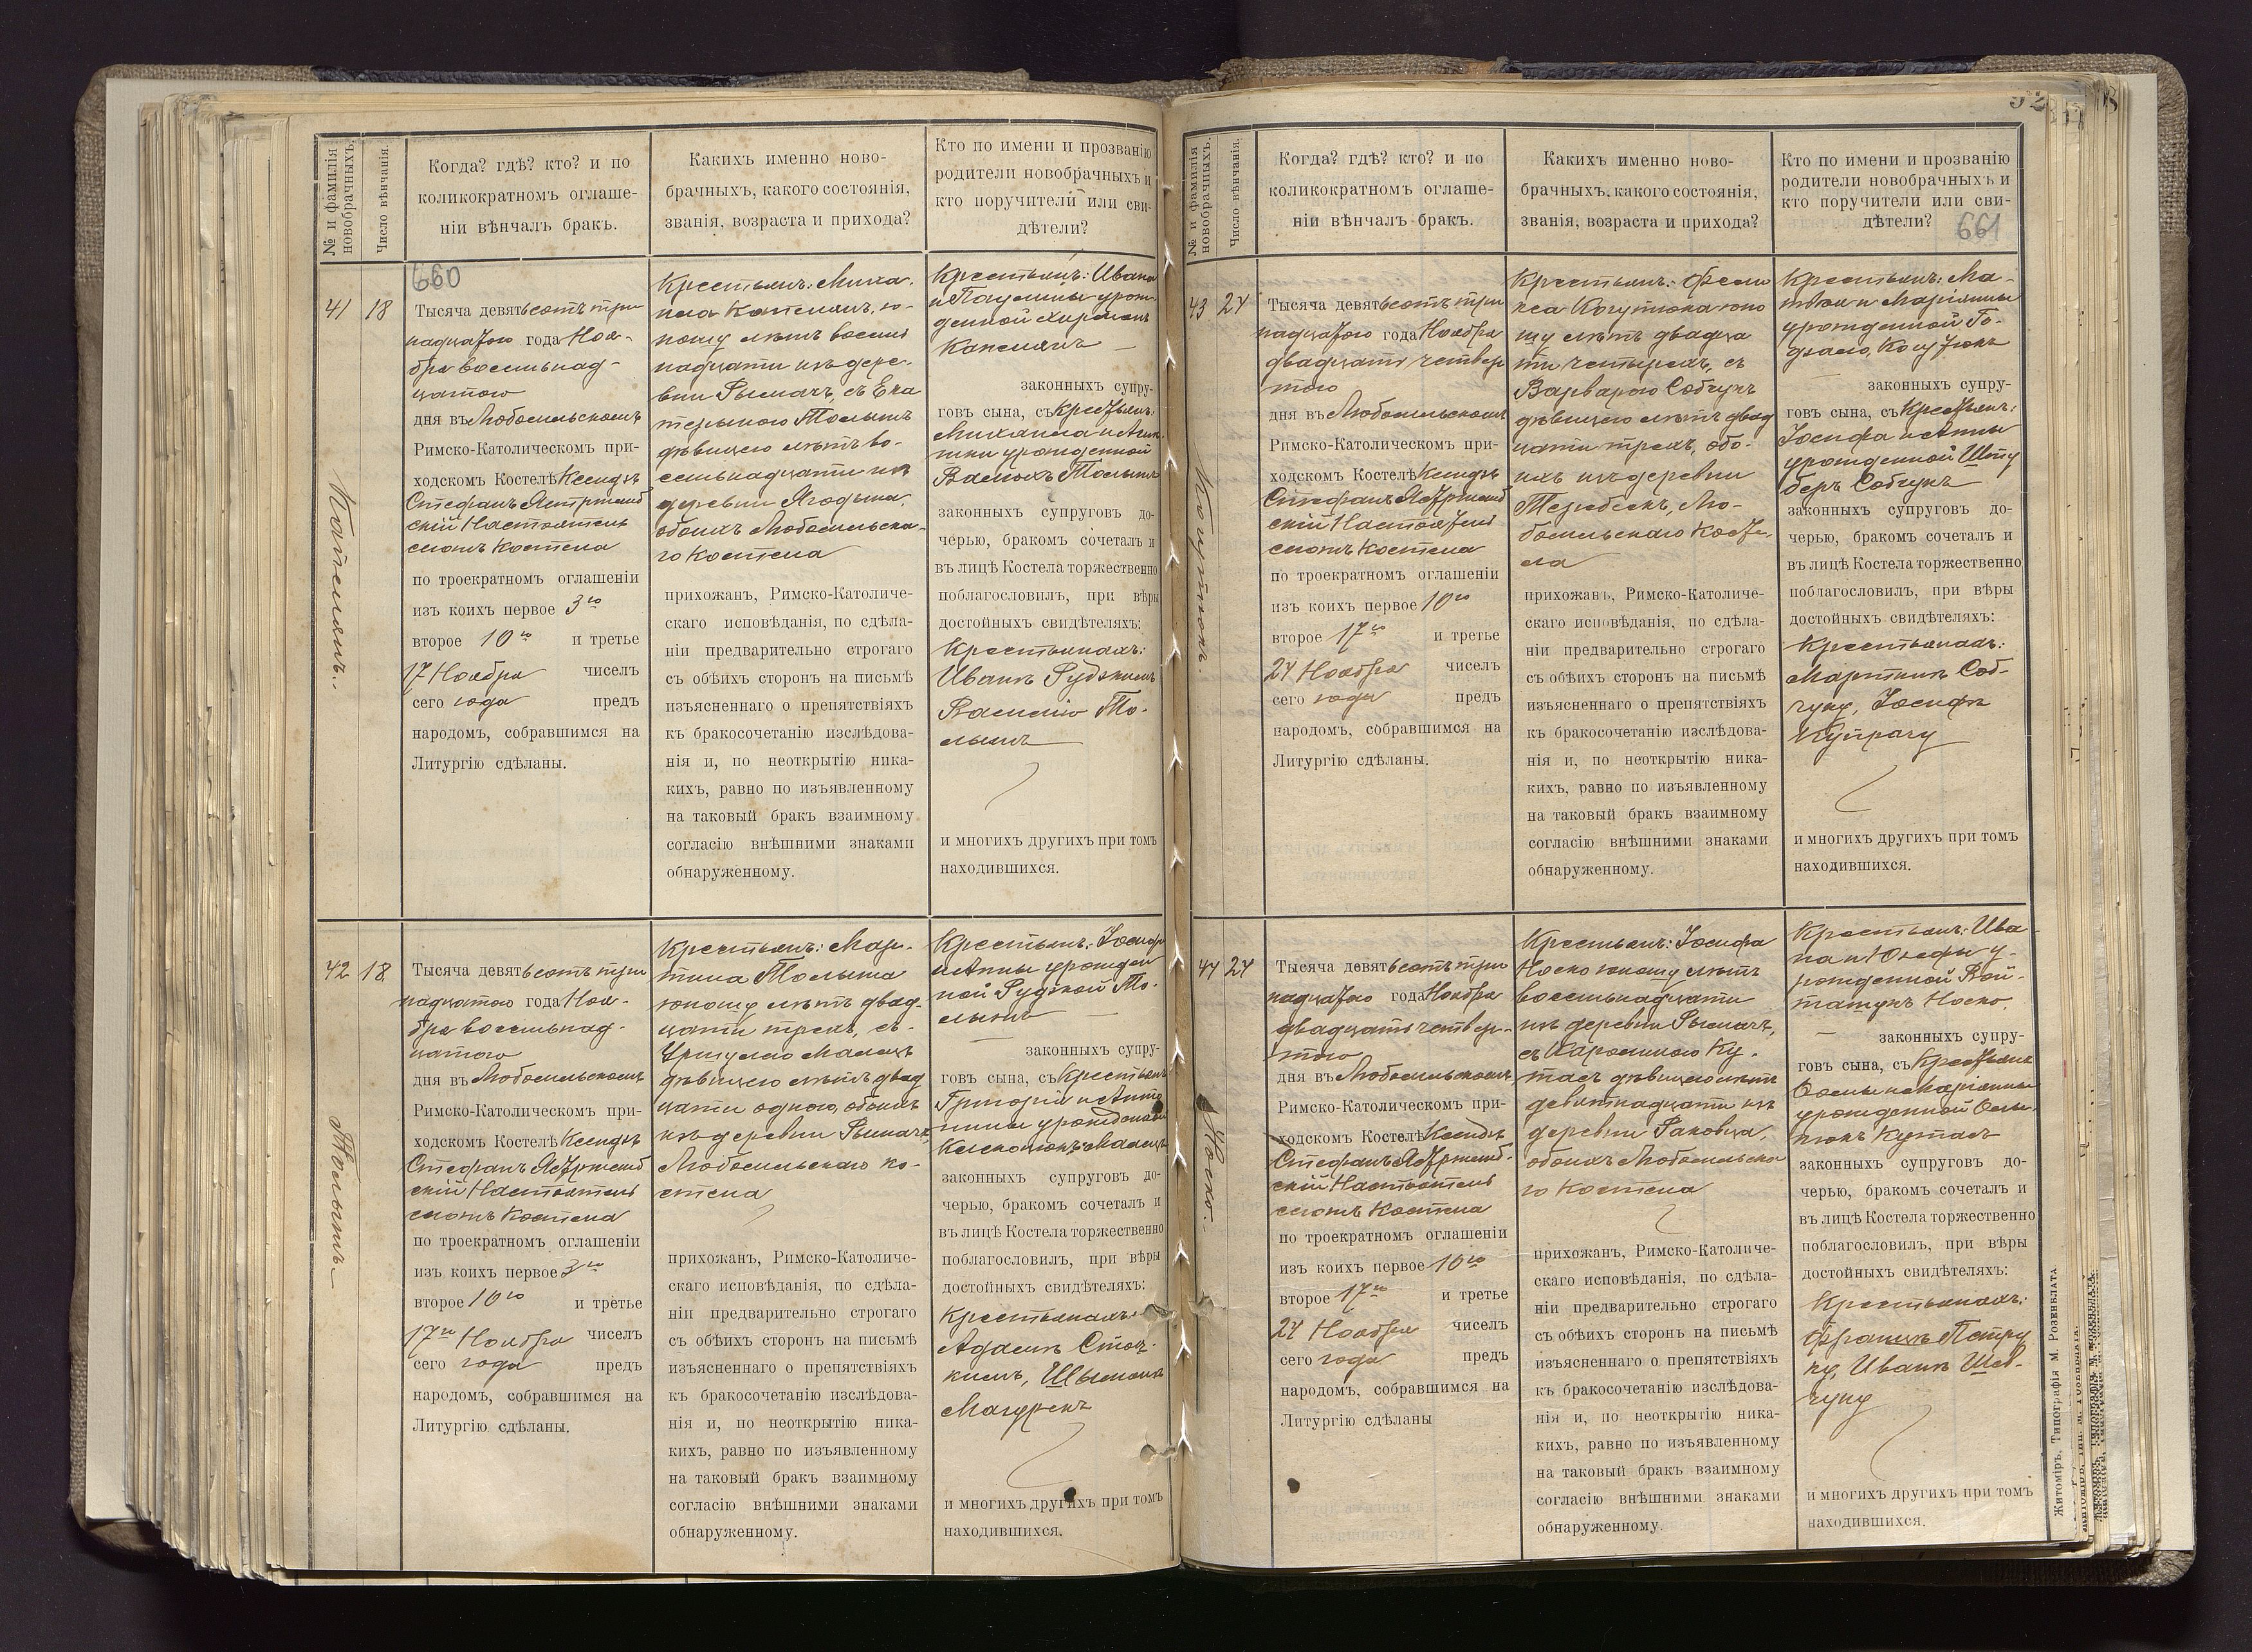 № и фамилія
новобрачныхъ.
Число вѣнчанія.
Когда? гдѣ? кто? и по
коликократномъ оглаше-
ніи вѣнчалъ бракъ.
Какихъ именно ново-
брачныхъ, какого состоянія,
званія, возраста и прихода?
Кто по имени и прозванію
родители новобрачныхъ и
кто поручители или сви-
дѣтели?
660
41
18
Тысяча девятьсотъ три
надцатого года Ноя-
бря восемьнад-
цатого
дня въ Любомльскомъ
Римско-Католическомъ при-
ходскомъ Костелѣ Ксендзъ
Стефанъ Ястржемб
скій Настоятель
сногъ Костела
по троекратномъ оглашеніи
изъ коихъ первое 3го
второе 10го и третье
17 Ноября чиселъ
сего года предъ
народомъ, собравшимся на
Литургію сдѣланы.
Крестьянъ: Миха-
ила юношу лѣтъ восемь
надцати изъ дере-
вни Рымачъ, съ Ека
териною Толышъ
дѣвицею лѣтъ во-
семьнадцати изъ
деревни Ягодына,
обоихъ Любомльска-
го Костела
прихожанъ, Римско-Католиче-
скаго исповѣданія, по сдѣла-
ніи предварительно строгаго
съ обѣихъ сторонъ на письмѣ
изъясненнаго о препятствіяхъ
къ бракосочетанію изслѣдова-
нія и, по неоткрытію ника-
кихъ, равно по изъявленному
на таковый бракъ взаимному
согласію внѣшними знаками
обнаруженному.
Крестьянъ: Ивана
и Паулины урож-
денной
законныхъ супру-
говъ сына, съ Крестьянъ:
Михаила и
урожденной
законныхъ супруговъ до-
черью, бракомъ сочеталъ и
въ лицѣ Костела торжественно
поблагословилъ, при вѣры
достойныхъ свидѣтеляхъ:
Крестьянахъ:
Иванъ Рудзкимъ
и многихъ другихъ при томъ
находившихся.
42
18
Толышъ
Тысяча девятьсотъ три
надцатого года Ноя-
бря восемьнад-
цатого
дня въ Любомльскомъ
Римско-Католическомъ при-
ходскомъ Костелѣ Ксендзъ
Стефанъ Ястржемб
скій Настоятель
сногъ Костела
по троекратномъ оглашеніи
изъ коихъ первое 3го
второе 10го и третье
17го Ноября чиселъ
сего года предъ
народомъ, собравшимся на
Литургію сдѣланы.
Крестьянъ: Мар-
тина Толыша
юношу лѣтъ двад-
цати трехъ, съ
Уршулею Малецъ
дѣвицею лѣтъ двад
цати одного, обоихъ
изъ деревни Рымачъ,
Любомльскаго Ко-
стела
прихожанъ, Римско-Католиче-
скаго исповѣданія, по сдѣла-
ніи предварительно строгаго
съ обѣихъ сторонъ на письмѣ
изъясненнаго о препятствіяхъ
къ бракосочетанію изслѣдова-
нія и, по неоткрытію ника-
кихъ, равно по изъявленному
на таковый бракъ взаимному
согласію внѣшними знаками
обнаруженному.
Крестьянъ: Іосифа
и Анны урожден
ной Рудзкой То-
лышъ
законныхъ супру-
говъ сына, съ Крестьянъ
Григорія и Анто
нины урожденной
законныхъ супруговъ до-
черью, бракомъ сочеталъ и
въ лицѣ Костела торжественно
поблагословилъ, при вѣры
достойныхъ свидѣтеляхъ:
Крестьянахъ
Адамъ
и многихъ другихъ при томъ
находившихся.
№ и фамилія
новобрачныхъ.
Число вѣнчанія.
Когда? гдѣ? кто? и по
коликократномъ оглаше-
ніи вѣнчалъ бракъ.
Какихъ именно ново-
брачныхъ, какого состоянія,
званія, возраста и прихода?
Кто по имени и прозванію
родители новобрачныхъ и
кто поручители или сви-
дѣтели?
661
43
24
Когутюкъ.
Тысяча девятьсотъ три
надцатого года Ноября
двадцать четвер
того
дня въ Любомльскомъ
Римско-Католическомъ при-
ходскомъ Костелѣ Ксендзъ
Стефанъ Ястржемб
скій Настоятель
сногъ Костела
по троекратномъ оглашеніи
изъ коихъ первое 10го
второе 17го и третье
24 Ноября чиселъ
сего года предъ
народомъ, собравшимся на
Литургію сдѣланы.
Крестьянъ: Фели
кса Когутюка юно
шу лѣтъ двадца
ти четырехъ, съ
Варварою Собчукъ
дѣвицею лѣтъ двад
цати трехъ, обо-
ихъ изъ деревни
Теребейкъ, Лю-
бомльскаго Косте-
ла
прихожанъ, Римско-Католиче-
скаго исповѣданія, по сдѣла-
ніи предварительно строгаго
съ обѣихъ сторонъ на письмѣ
изъясненнаго о препятствіяхъ
къ бракосочетанію изслѣдова-
нія и, по неоткрытію ника-
кихъ, равно по изъявленному
на таковый бракъ взаимному
согласію внѣшними знаками
обнаруженному.
Крестьянъ: Ма-
твѣя и Маріянны
урожденной
Когутюкъ
законныхъ супру-
говъ сына, съ Крестьянъ:
Іосифа и Анны
урожденной Шту
беръ Собчукъ
законныхъ супруговъ до-
черью, бракомъ сочеталъ и
въ лицѣ Костела торжественно
поблагословилъ, при вѣры
достойныхъ свидѣтеляхъ:
Крестьянахъ:
Мартинъ Соб-
чуку, Іосифъ
Купрачу
и многихъ другихъ при томъ
находившихся.
44
24
Носко.
Тысяча девятьсотъ три
надцатого года Ноября
двадцать четвер-
того
дня въ Любомльскомъ
Римско-Католическомъ при-
ходскомъ Костелѣ Ксендзъ
Стефанъ Ястржемб-
скій Настоятель
сногъ Костела
по троекратномъ оглашеніи
изъ коихъ первое 10го
второе 17го и третье
24 Ноября чиселъ
сего года предъ
народомъ, собравшимся на
Литургію сдѣланы
Крестьянъ: Іосифа
Носко юношу лѣтъ
восемьнадцати
изъ деревни Рымачъ,
съ Каролиною Ку-
тасъ дѣвицею лѣтъ
девятнадцати изъ
деревни Раковца,
обоихъ Любомльска
го Костела
прихожанъ, Римско-Католиче-
скаго исповѣданія, по сдѣла-
ніи предварительно строгаго
съ обѣихъ сторонъ на письмѣ
изъясненнаго о препятствіяхъ
къ бракосочетанію изслѣдова-
нія и, по неоткрытію ника-
кихъ, равно по изъявленному
на таковый бракъ взаимному
согласію внѣшними знаками
обнаруженному.
Крестьянъ: Ива
на и Юзефы у-
рожденной Вой-
Носко,
законныхъ супру-
говъ сына, съ Крестьянъ
и Маріянны
урожденной
Кутасъ
законныхъ супруговъ до-
черью, бракомъ сочеталъ и
въ лицѣ Костела торжественно
поблагословилъ, при вѣры
достойныхъ свидѣтеляхъ:
Крестьянахъ:
Францъ Петру
ку, Иванъ Шев-
чуку
и многихъ другихъ при томъ
находившихся.
Житоміръ, Типографія М. Розенблата